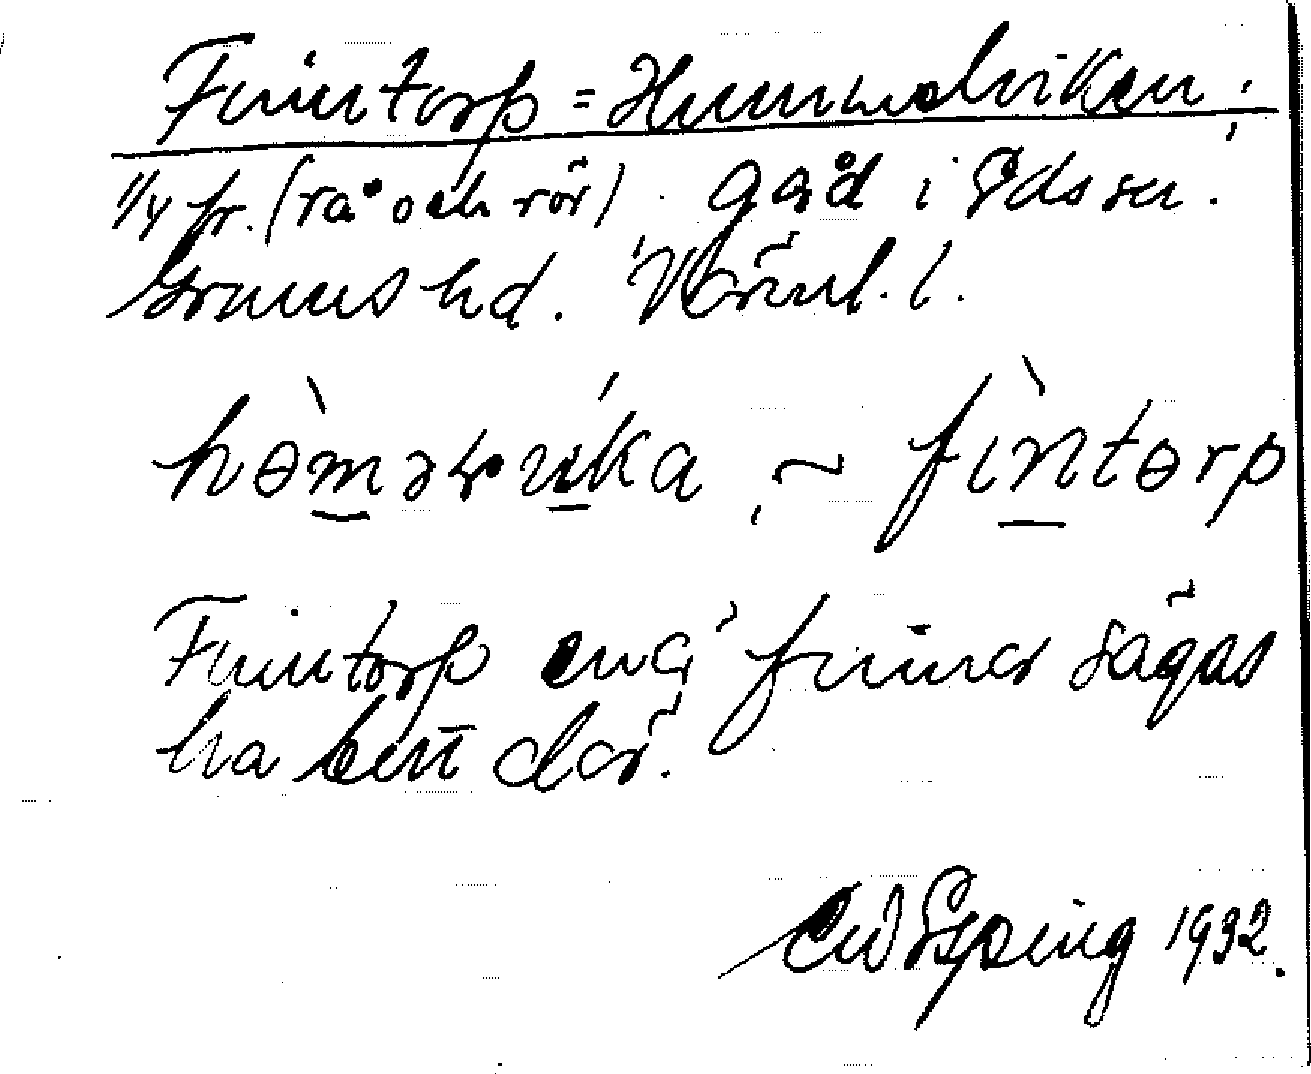 Finntorp = Hummelviken;
1/4 fr. (rå och rör). gård i Eds sn.
Grums hd. Värml. l.
hɵ̀məvíka, ~ fìntɵrp
Finntorp enä finnar sägas
ha bott där.
1932.